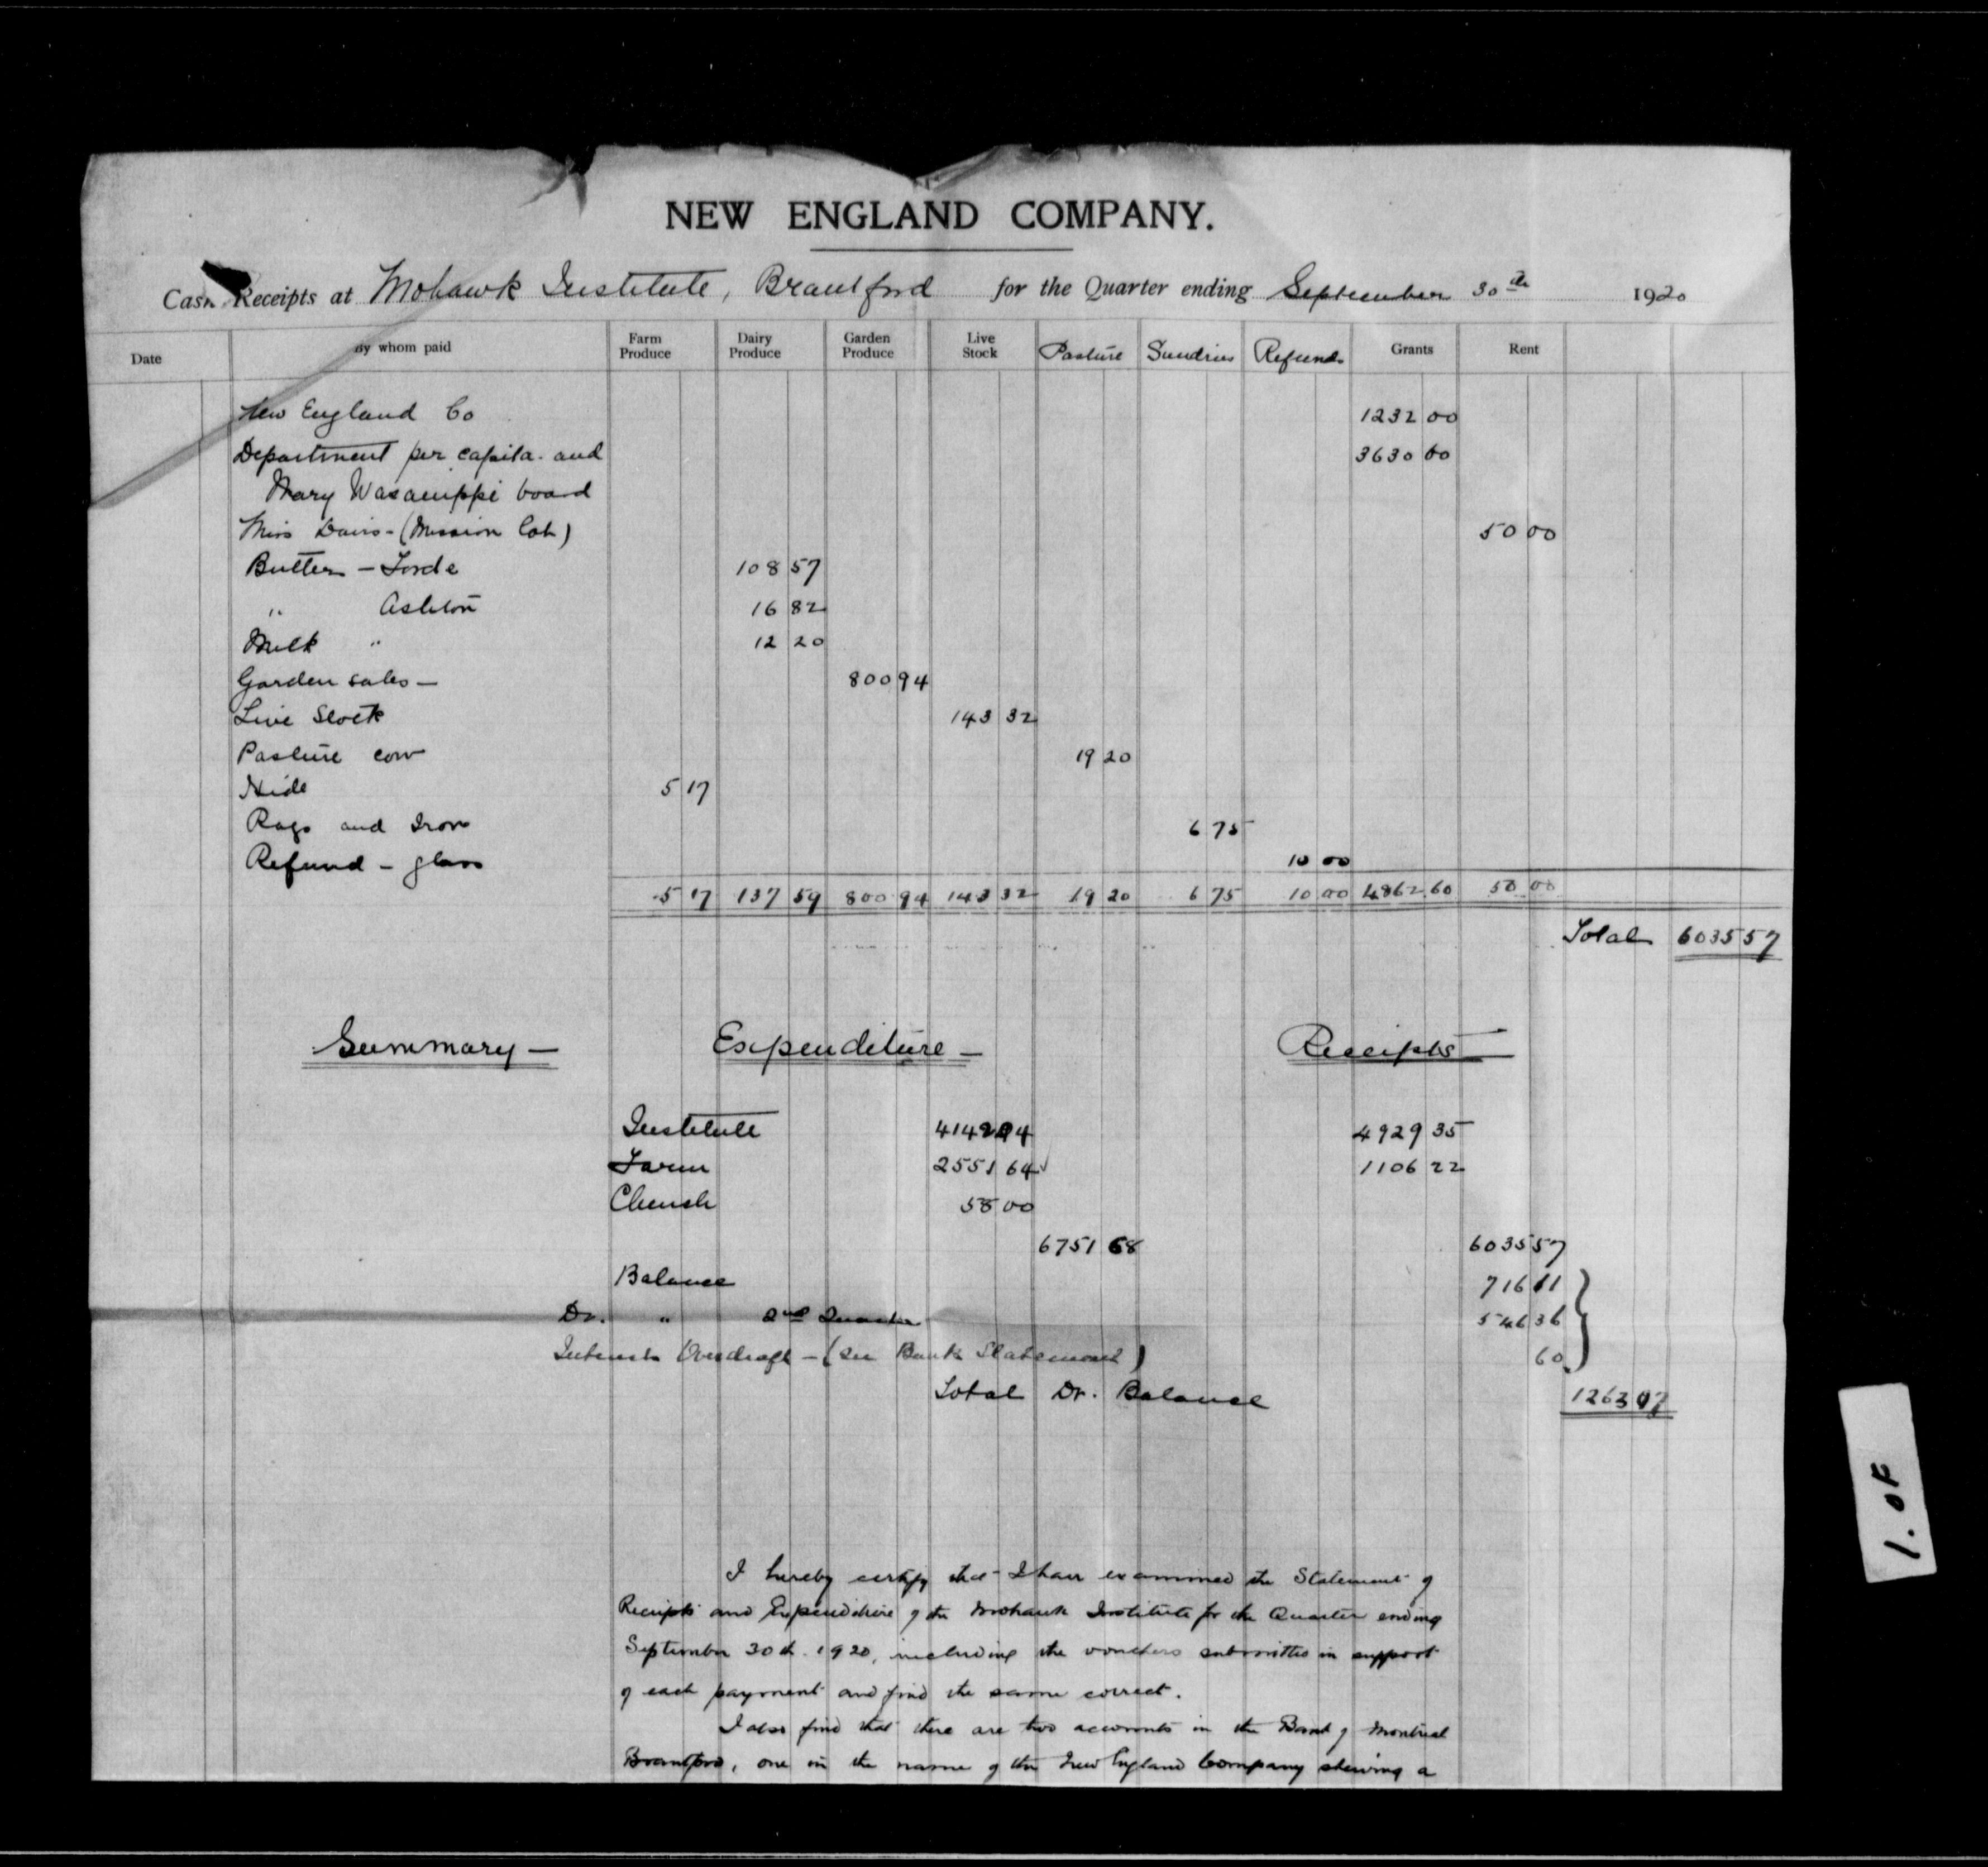 NEW ENGLAND COMPANY.
Cash Receipts at Mohawk Institute, Brantford for the Quarter ending September 30th 1920
Date By whom paid Farm Produce Dairy Produce Garden Produce Live Stock Pasture Sundries Refund Grants Rent
New England Co 1232 00
Department per capita and 3630 60
Mary Wasacuppi board
Miss Davis - (Mission Cot) 50 00
Butter - Forde 108 57
" Ashton 16 82
Milk " 12 20
Garden sales - 800 94
Live Stock 143 32
Pasture cow 19 20
Hide 5 17
Rags and Iron 6 75
Refund - glass 10 00
5 17 137 59 800 94 143 32 19 20 6 75 10 00 4862 60 50 00
Total 6035 57
Summary - Expenditure - Receipts
Institute 4142 04 4929 35
Farm 2551 64 1106 22
Church 58 00
6751 68 6035 57
Balance 716 11
Dr. " 2nd Quarter 546 36
Interest Overdraft - (see Bank Statement) 60
Total Dr. Balance 1263 07
I hereby certify that I have examined the Statement of
Receipts and Expenditure of the Mohawk Institute for the Quarter ending
September 30th 1920, including the vouchers submitted in support
of each payment and find the same correct.
I also find that there are two accounts in the Bank of Montreal
Brantford, one in the name of the New England Company shewing a
1. OF